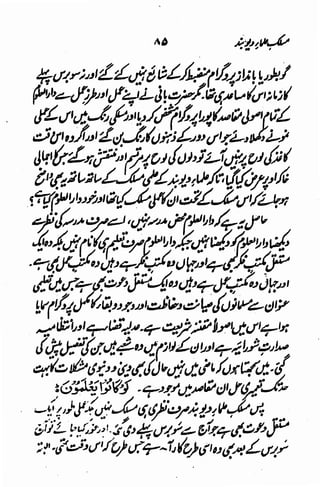 مسلک علماء دیوبند
۸۵
گو بطور یا بانداز پروگرام منضبط کر کے شائع نہیں کئے گئے اور نہ سو برس پہلے
کا زمانہ اس کا مساعد ہی تھا، مگر حضرت بانی نے اپنے عمل اور طرز عمل سے دارالعلوم
کے تمام اصولی مقاصد کا پروگرام مشخص کر دیا اور مسلکی رنگ میں اس کے عملی
نمونے دکھلادئے جو اس دور کے ذہنوں کا رنگ بن گئے اور اگر وہ اس وقت
کاغذ کی لوح پر نہیں آئے تو دلوں کی لوح پر مرتسم اور منقش ہو گئے جس کا اجمالی
خاکہ اوپر عرض کیا گیا، تاکہ علماء دیوبند کے علمی مسلک کے ساتھ ساتھ یہ بھی واضح
ہو جائے کہ اس مسلک کے تحت ان کا عملی مسلک کیا تھا اور خود دارالعلوم کیا ہے؟
حاصل یہ ہے کہ دارالعلوم محض مدرسہ نہیں، اسے صرف مدرسہ کی نظر سے
دیکھنا دارالعلوم کو دیکھنا نہیں جبکہ دارالعلوم صرف تعلیم ہی کا نام نہیں بلکہ وہ ایک
مستقل مکتب فکر بھی ہے اور جہاں وہ مکتب فکر ہے وہیں وہ مکتب عمل بھی ہے۔
اور جہاں وہ مکتب عمل ہے وہیں وہ ایک مستقل دعوت بھی ہے جس میں تعلیمی
عنوان سے مسلمانوں کی صیانت و حفاظت اور وجود و بقاء کا مکمل پروگرام سمایا
ہوا ہے اس میں اصولاً مقننہ شریعت ہے۔ عدلیہ قضاء ہے اور انتظامیہ
صدارت شورائیہ ہے اور ان کے لوازم میں وہ شعبے ہیں جن کی تفصیل پیش کی
گئی۔ میں سمجھتا ہوں کہ ماضی نہیں حال کی بھی دینی و دنیوی مشکلات کا بہت
حد تک تعمیری حل ان مقاصد میں موجود ہے۔ لَوْ كَانُوْا يَعْلَمُوْنَ۝
پس مسلک علماء دیوبند صرف نظری ہی مسلک نہیں بلکہ عملی طور پر ایک
مستقل دعوت بھی ہے جو آج سے سو برس پہلے دی گئی۔ اور غور کیا جائے تو آج
سو برس کے بعد بھی وہ اسی طرح کار آمد ہے جس طرح کہ اس وقت تھی۔ البتہ